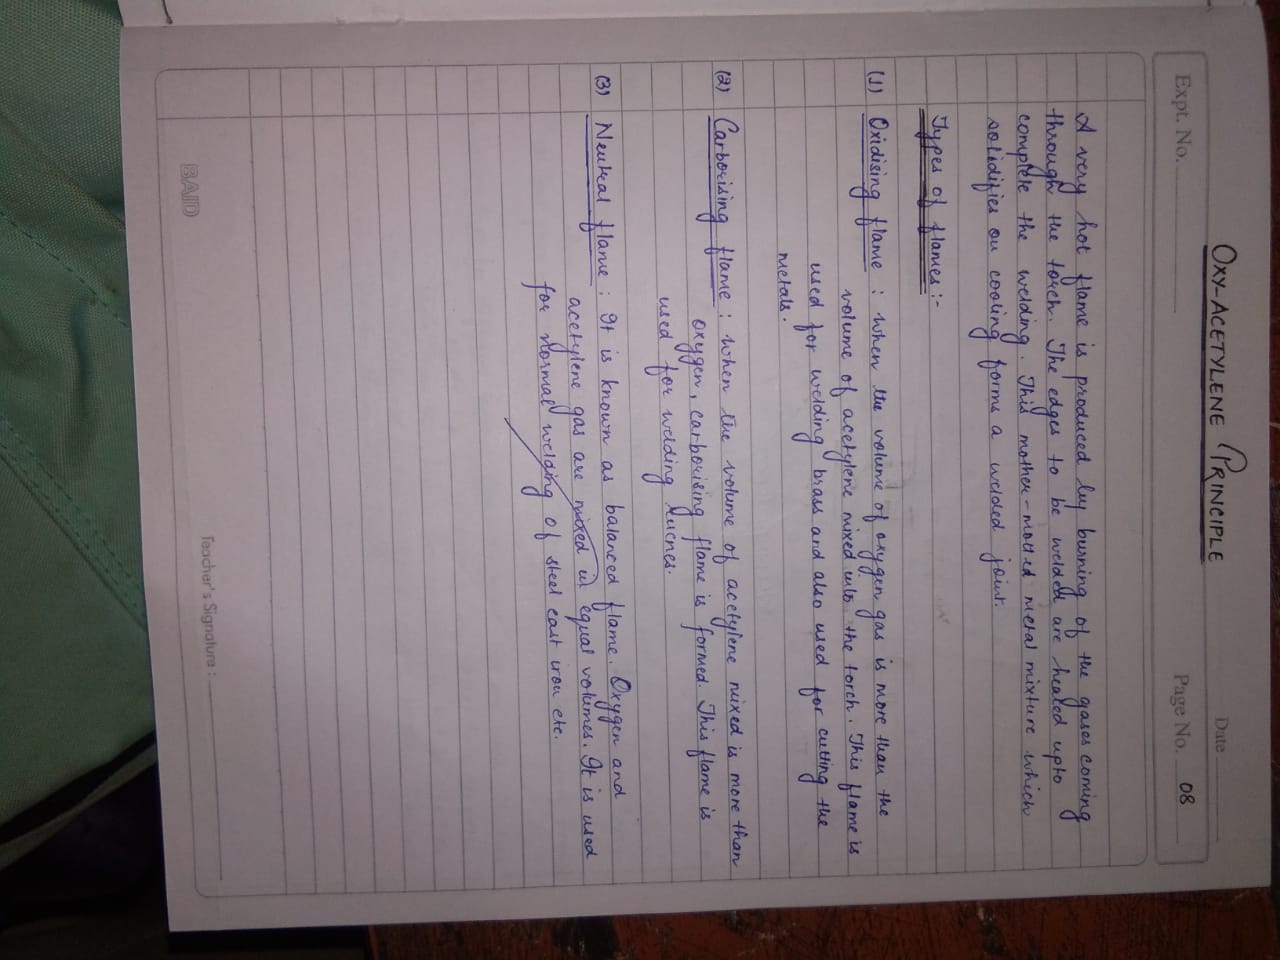 Date
OXY-ACETYLENE PRINCIPLE
Expt. No.
Page No. 08
A very hot flame is produced by burning of the gases coming
through the torch. The edges to be welded are heated upto
complete the welding. This mother-molted metal mixture which
solidifies on cooling forms a welded joint.
Types of flames :-
(1) Oxidising flame : when the volume of oxygen gas is more than the
volume of acetylene mixed into the torch. This flame is
used for welding brass and also used for cutting the
metals.
(2) Carborising flame : when the volume of acetylene mixed is more than
oxygen, carborising flame is formed. This flame is
used for welding
(3) Neutral flame : It is known as balanced flame. Oxygen and
acetylene gas are mixed in equal volumes. It is used
for normal welding of steel cast iron etc.
Teacher's Signature :
BAID